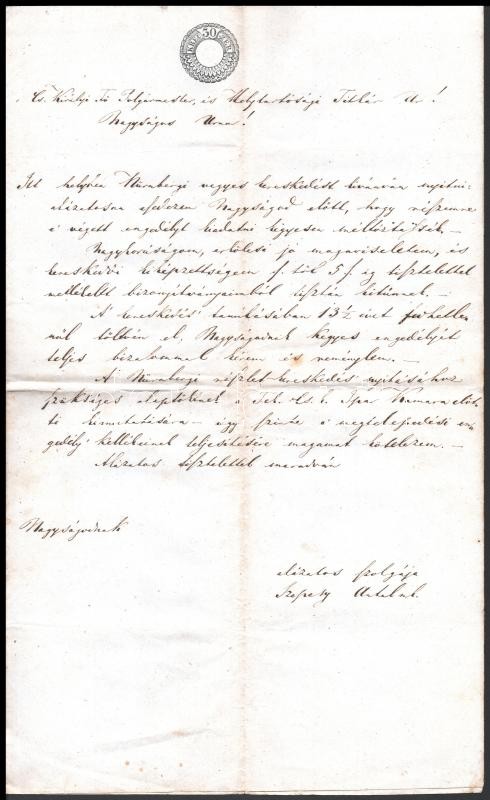 30
Cs. Királyi Fő Polgármester, és Helytartósági Titkár Úr!
Nagyságos Uram!
Itt helyben Nürnbergi vegyes kereskedést kivánván nyitni
alázatosan esedezem Nagyságod előtt, hogy részemre
e végett engedélyt kiadatni kegyesen méltóztassék. —
Nagykorúságom, erkölcsi jó magaviseletem, és
kereskedői kiképzettségem ·/. től 5 ·/. ig tisztelettel
mellékelt bizonyítványaimból tisztán kitünnek. —
A kereskedés tanulásában 13½ évet
töltvén el, Nagyságodnak kegyes engedélyét
teljes bizalommal kérem és reménylem. —
A Nürnbergi részlet-kereskedés nyitásához
szükséges alaptőkének a Tek. Cs. k. Ipar Kamara előt
ti bemutatására — úgy szinte a megtelepedési en
gedély kellékeinek teljesítésére magamat kötelezem. —
Alázatos tisztelettel maradván
Nagyságodnak
alázatos szolgája
Antal